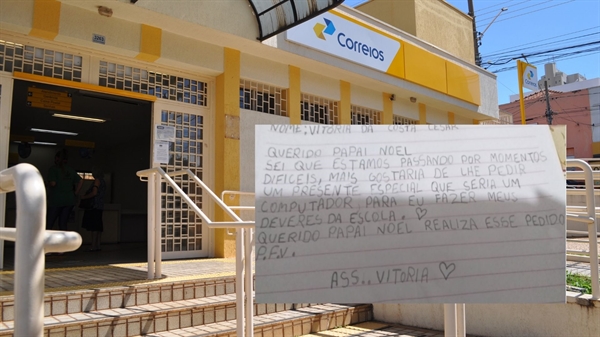 Correios
NOME: VITORIA DA COSTA CESAR
QUERIDO PAPAI NOEL
SEI QUE ESTAMOS PASSANDO POR MOMENTOS
DIFICEIS, MAIS GOSTARIA DE LHE PEDIR
UM PRESENTE ESPECIAL QUE SERIA UM
COMPUTADOR PARA EU FAZER MEUS
DEVERES DA ESCOLA. ♡
QUERIDO PAPAI NOEL REALIZA ESSE PEDIDO
P.F.V.
ASS.. VITORIA ♡